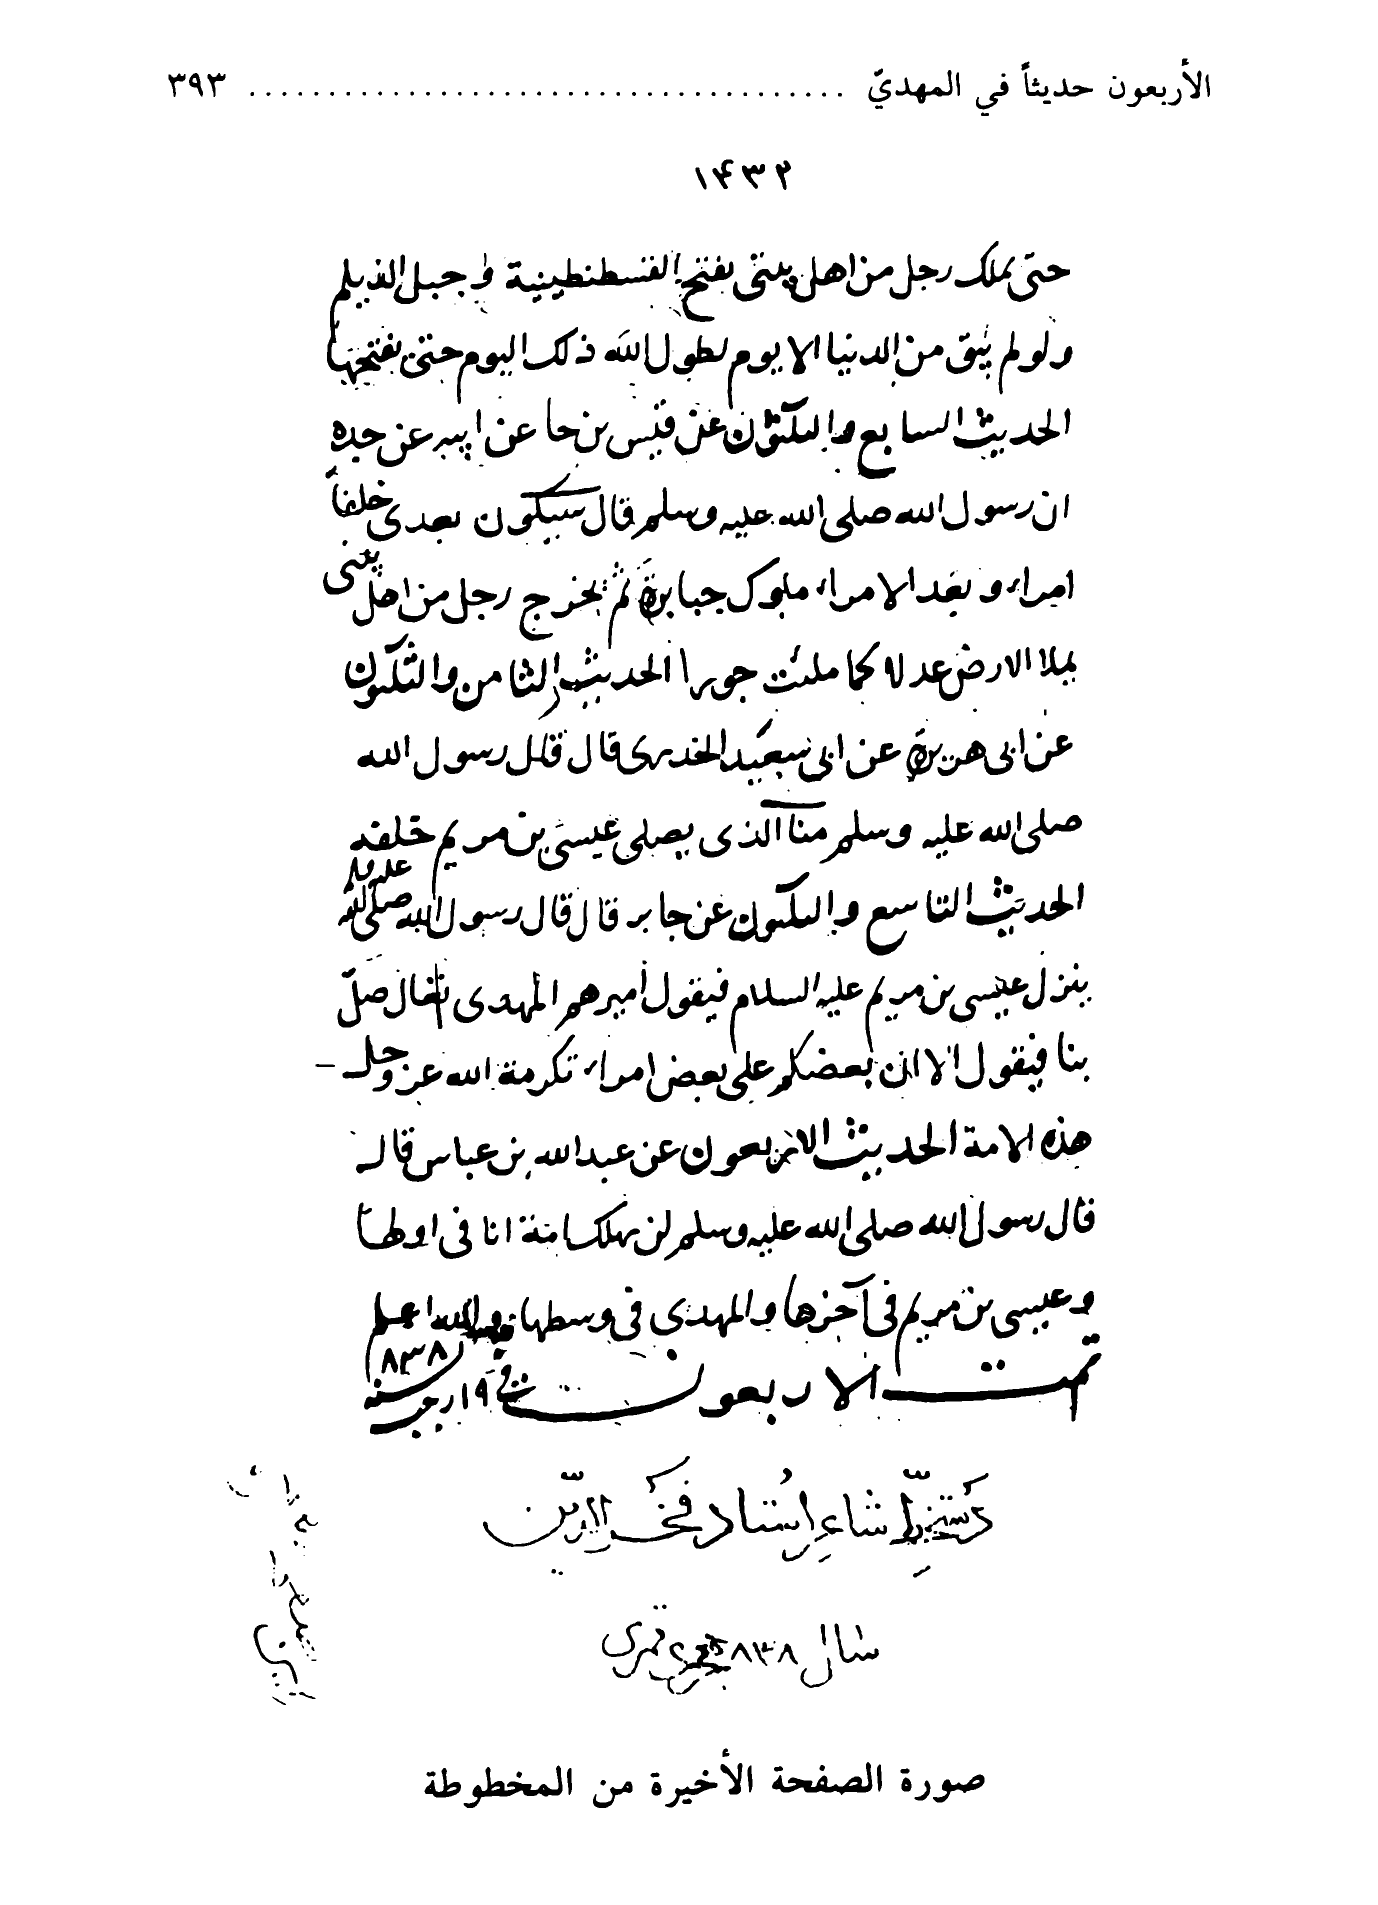 الأربعون حديثاً في المهديّ ........................................ ٣٩٣
١۴٣٢
حتّى يملك رجل من اهل بيتى يفتح القسطنطينية و جبل الديلم
ولو لم يبق من الدنيا الا يوم لطول الله ذلك اليوم حتى يفتحها
الحديث السابع والثلثون عن قيس بن جا عن ابيه عن جده
ان رسول الله صلى الله عليه وسلم قال سيكون بعدى خلفا
امراء و بعد الامراء ملوك جبابرة ثم يخرج رجل من اهل بيتى
يملا الارض عدلا كما ملئت جورا الحديث الثامن والثلثون
عن ابى هريرة عن ابى سعيد الخدرى قال قال رسول الله
صلى الله عليه وسلم منا الذى يصلى عيسى بن مريم خلفه
الحديث التاسع والثلثون عن جابر قال قال رسول الله صلى الله عليه
ينزل عيسى بن مريم عليه السلام فيقول اميرهم المهدى تعال صلّ
بنا فيقول الا ان بعضكم على بعض امراء تكرمة الله عز وجل
هذه الامة الحديث الاربعون عن عبدالله بن عباس قال
قال رسول الله صلى الله عليه وسلم لن يهلك امة انا فى اولها
وعيسى بن مريم فى آخرها والمهدى فى وسطها والله اعلم
تمت الاربعون فى ١٩ رجب سنه ٨٣٨
دستخط شاء استاد فخرالدين
سال ٨٣٨ هجرى قمرى
صورة الصفحة الأخيرة من المخطوطة